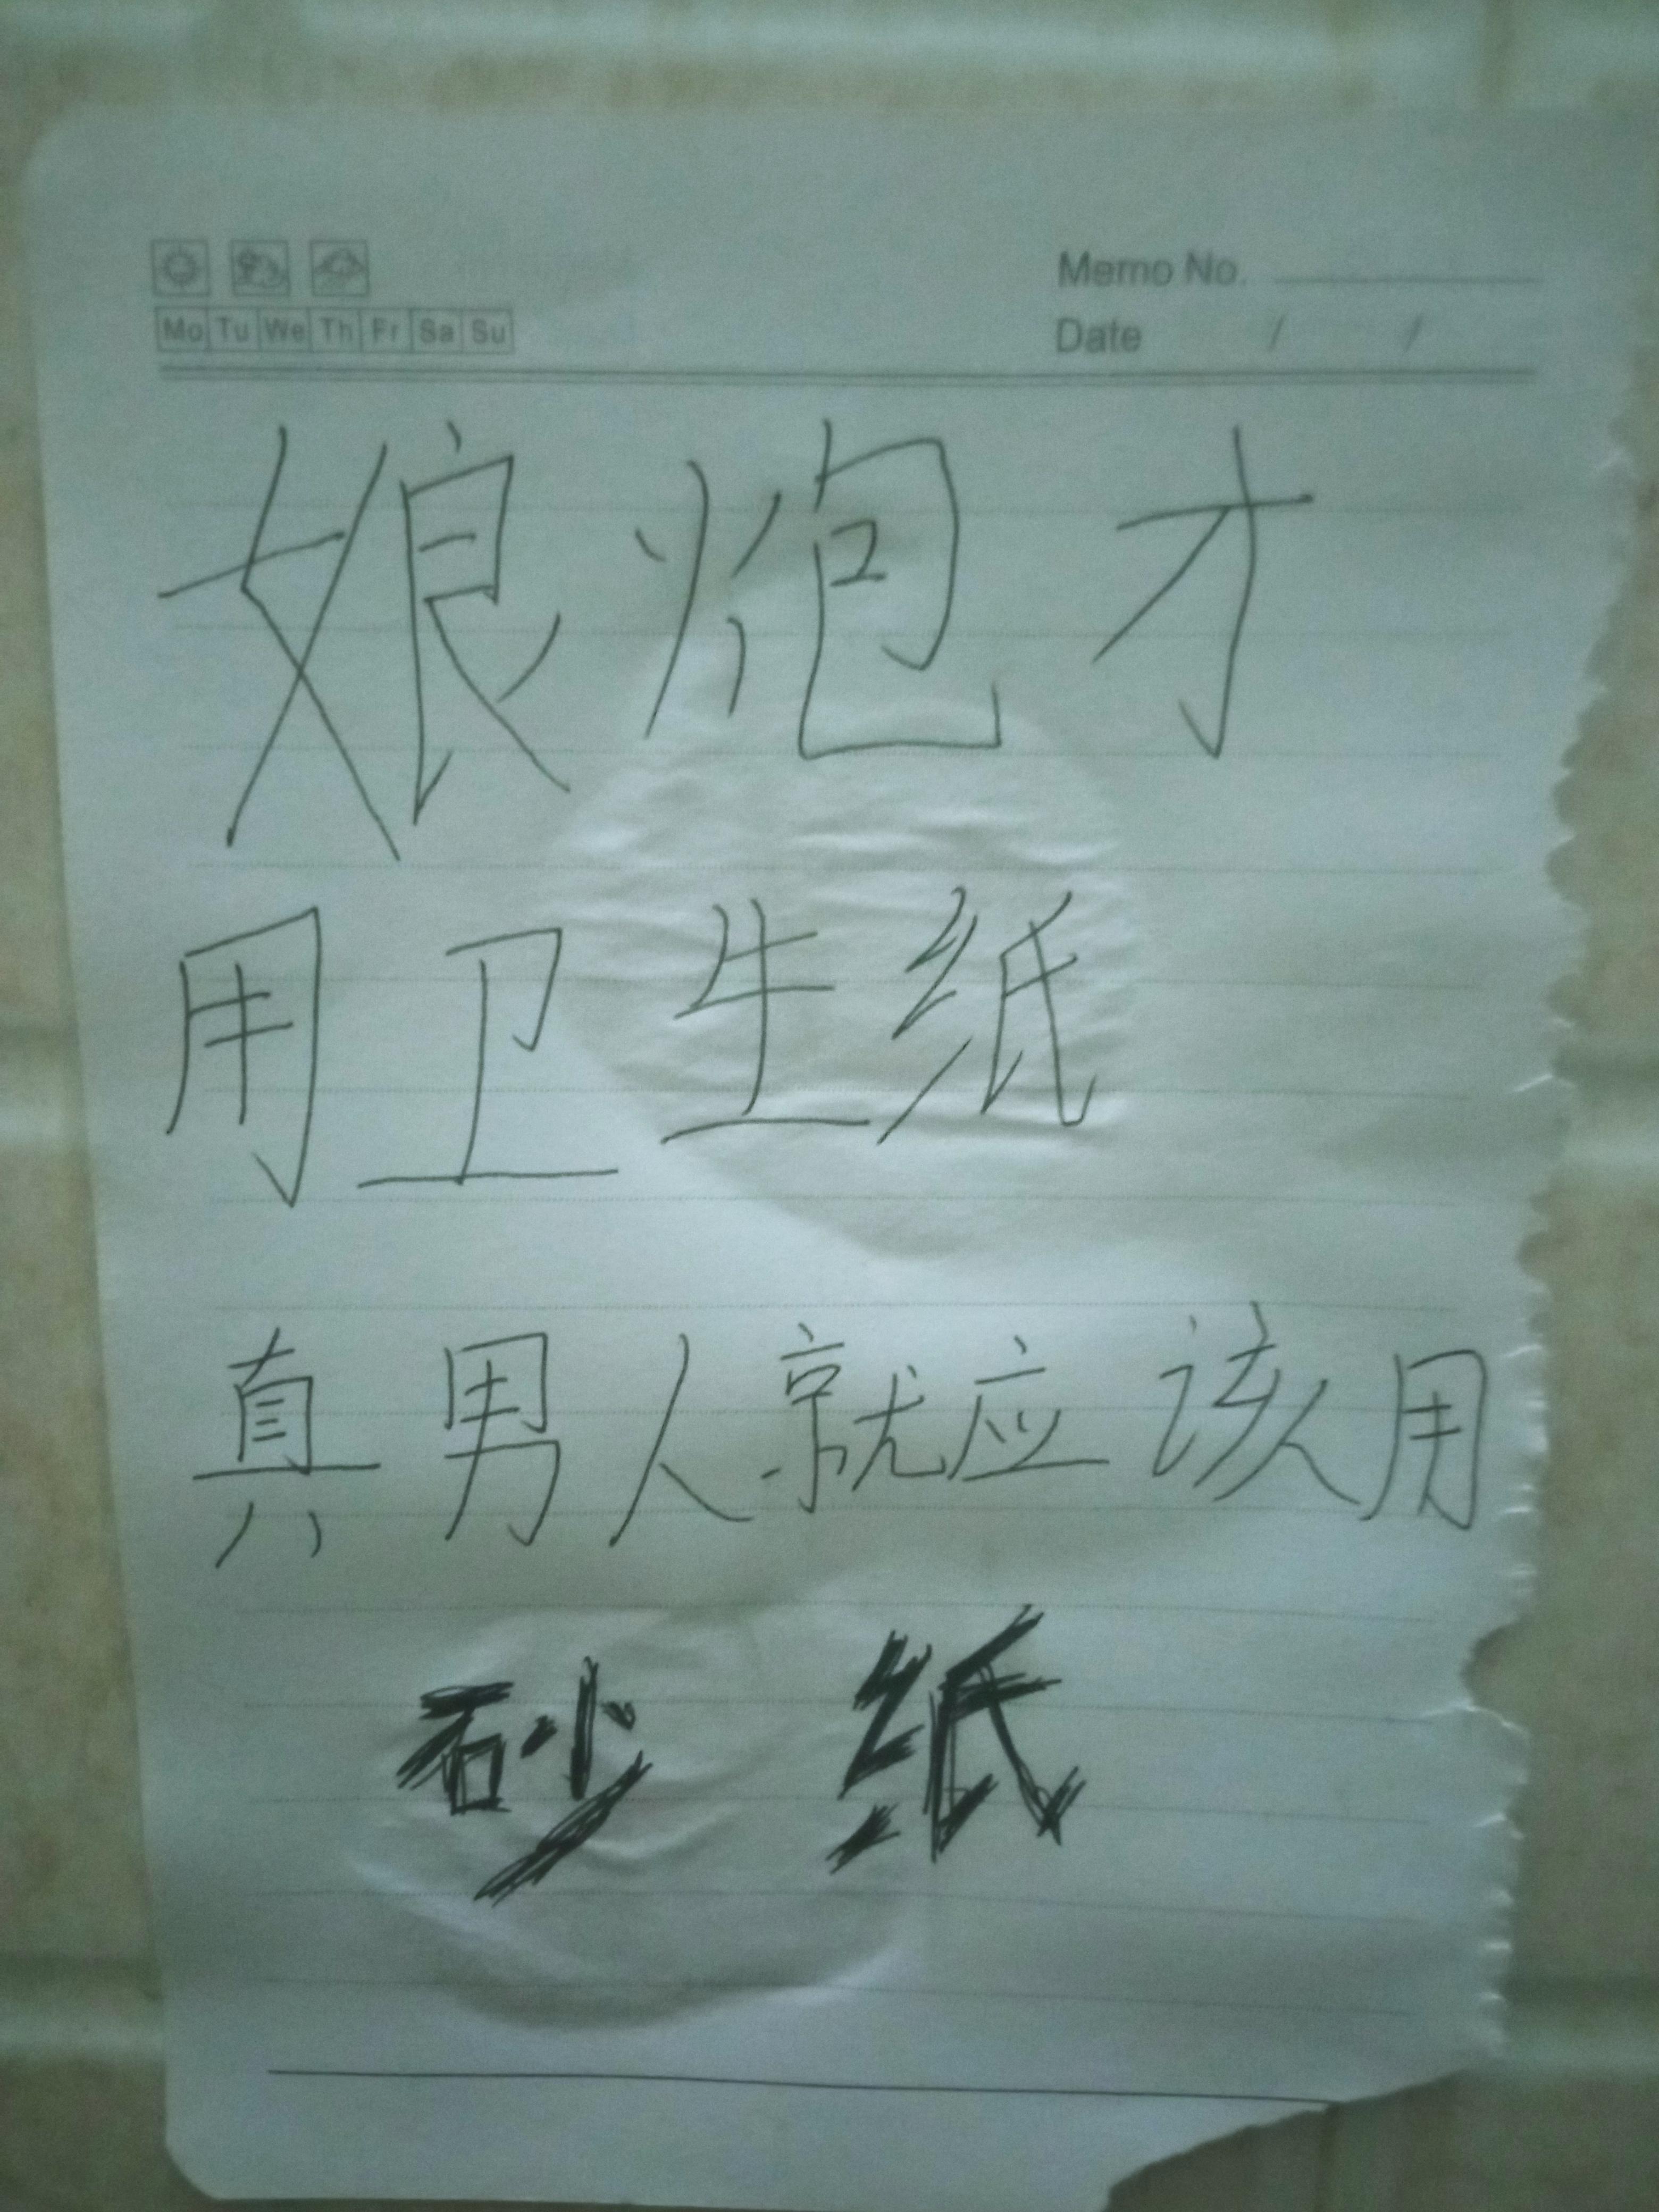 Memo No.
Mo Tu We Th Fr Sa Su
Date / /
娘炮才
用卫生纸
真男人就应该用
砂纸